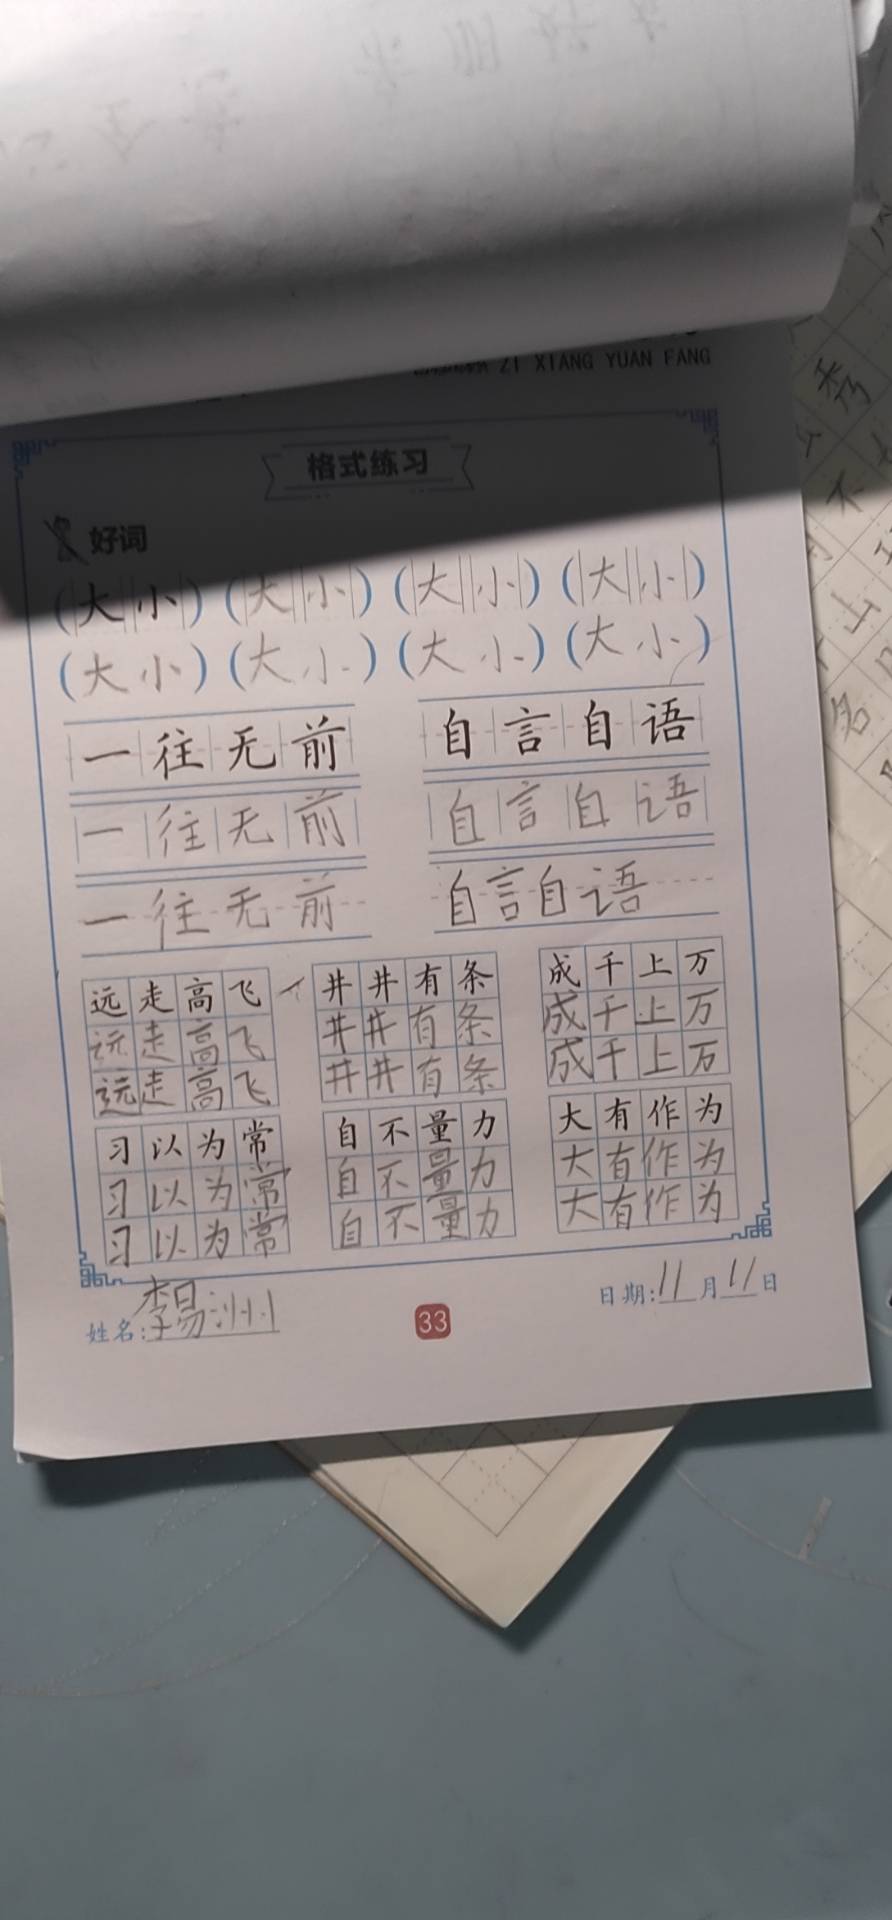 ZI XIANG YUAN FANG
格式练习
好词
(大小) (大小) (大小) (大小)
(大小) (大小) (大小) (大小)
一往无前 自言自语
一往无前 自言自语
一往无前 自言自语
远走高飞 井井有条 成千上万
远走高飞 井井有条 成千上万
远走高飞 井井有条 成千上万
习以为常 自不量力 大有作为
习以为常 自不量力 大有作为
习以为常 自不量力 大有作为
姓名:李易洲 33 日期:11月11日